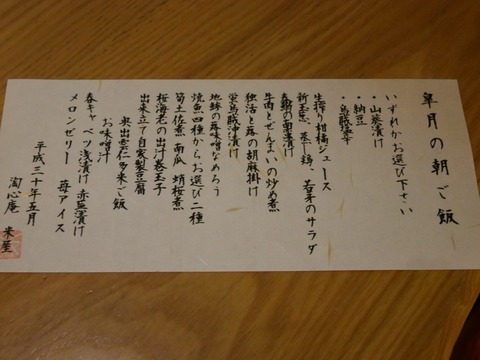 皐月の朝ご飯
いずれかお選び下さい
・山葵漬け
・納豆
・烏賊塩辛
生搾り柑橘ジュース
新玉葱、蒸し鶏、若芽のサラダ
春鰤の南蛮漬け
牛肉とぜんまいの炒め煮
独活と蕗の胡麻掛け
蛍烏賊沖漬け
地鯵の蕗味噌なめろう
焼魚四種からお選び二種
筍土佐煮 南瓜 蛸桜煮
桜海老の出汁巻玉子
出来立て自家製豆腐
奥出雲仁多米ご飯
お味噌汁
春キャベツ浅漬け 赤蕪漬け
メロンゼリー 苺アイス
平成三十年五月
陶心庵 米屋